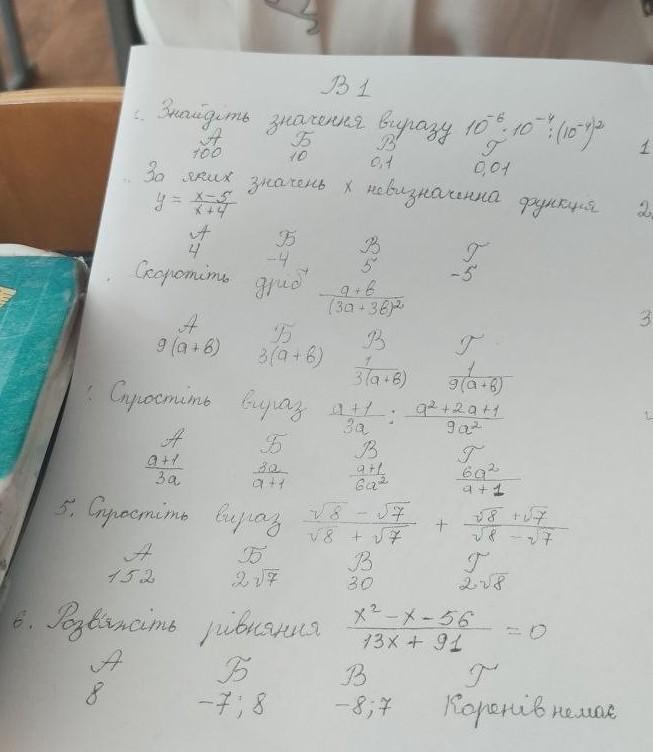 В 1
1. Знайдіть значення виразу 10⁻⁶ · 10⁻⁴ : (10⁻⁴)²
А Б В Г
100 10 0,1 0,01
За яких значень х невизначенна функція
y = (x-5)/(x+4)
А Б В Г
4 -4 5 -5
Скоротіть дріб (a+b)/(3a+3b)²
А Б В Г
9(a+b) 3(a+b) 1/(3(a+b)) 1/(9(a+b))
Спростіть вираз (a+1)/(3a) : (a²+2a+1)/(9a²)
А Б В Г
(a+1)/(3a) 3a/(a+1) (a+1)/(6a²) 6a²/(a+1)
5. Спростіть вираз (√8 - √7)/(√8 + √7) + (√8 + √7)/(√8 - √7)
А Б В Г
152 2√7 30 2√8
6. Розв'яжіть рівняння (x² - x - 56)/(13x + 91) = 0
А Б В Г
8 -7; 8 -8; 7 Коренів немає
1
2.
3